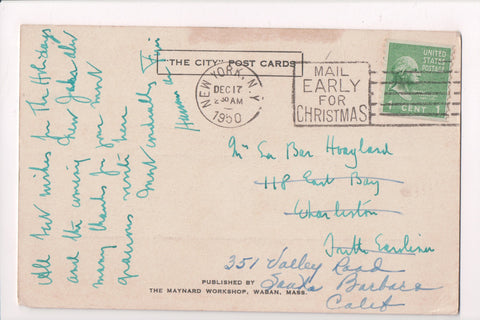 "THE CITY" POST CARDS
NEW YORK, N.Y.
DEC 17
2 30 AM
1950
MAIL
EARLY
FOR
CHRISTMAS
UNITED
STATES
POSTAGE
1 CENT 1
All best wishes for the Holidays
and the coming New Year also
many thanks for your most
gracious note here
Most cordially
118 East Bay
Charleston
South Carolina
351 Valley Road
Santa Barbara
Calif
PUBLISHED BY
THE MAYNARD WORKSHOP, WABAN, MASS.